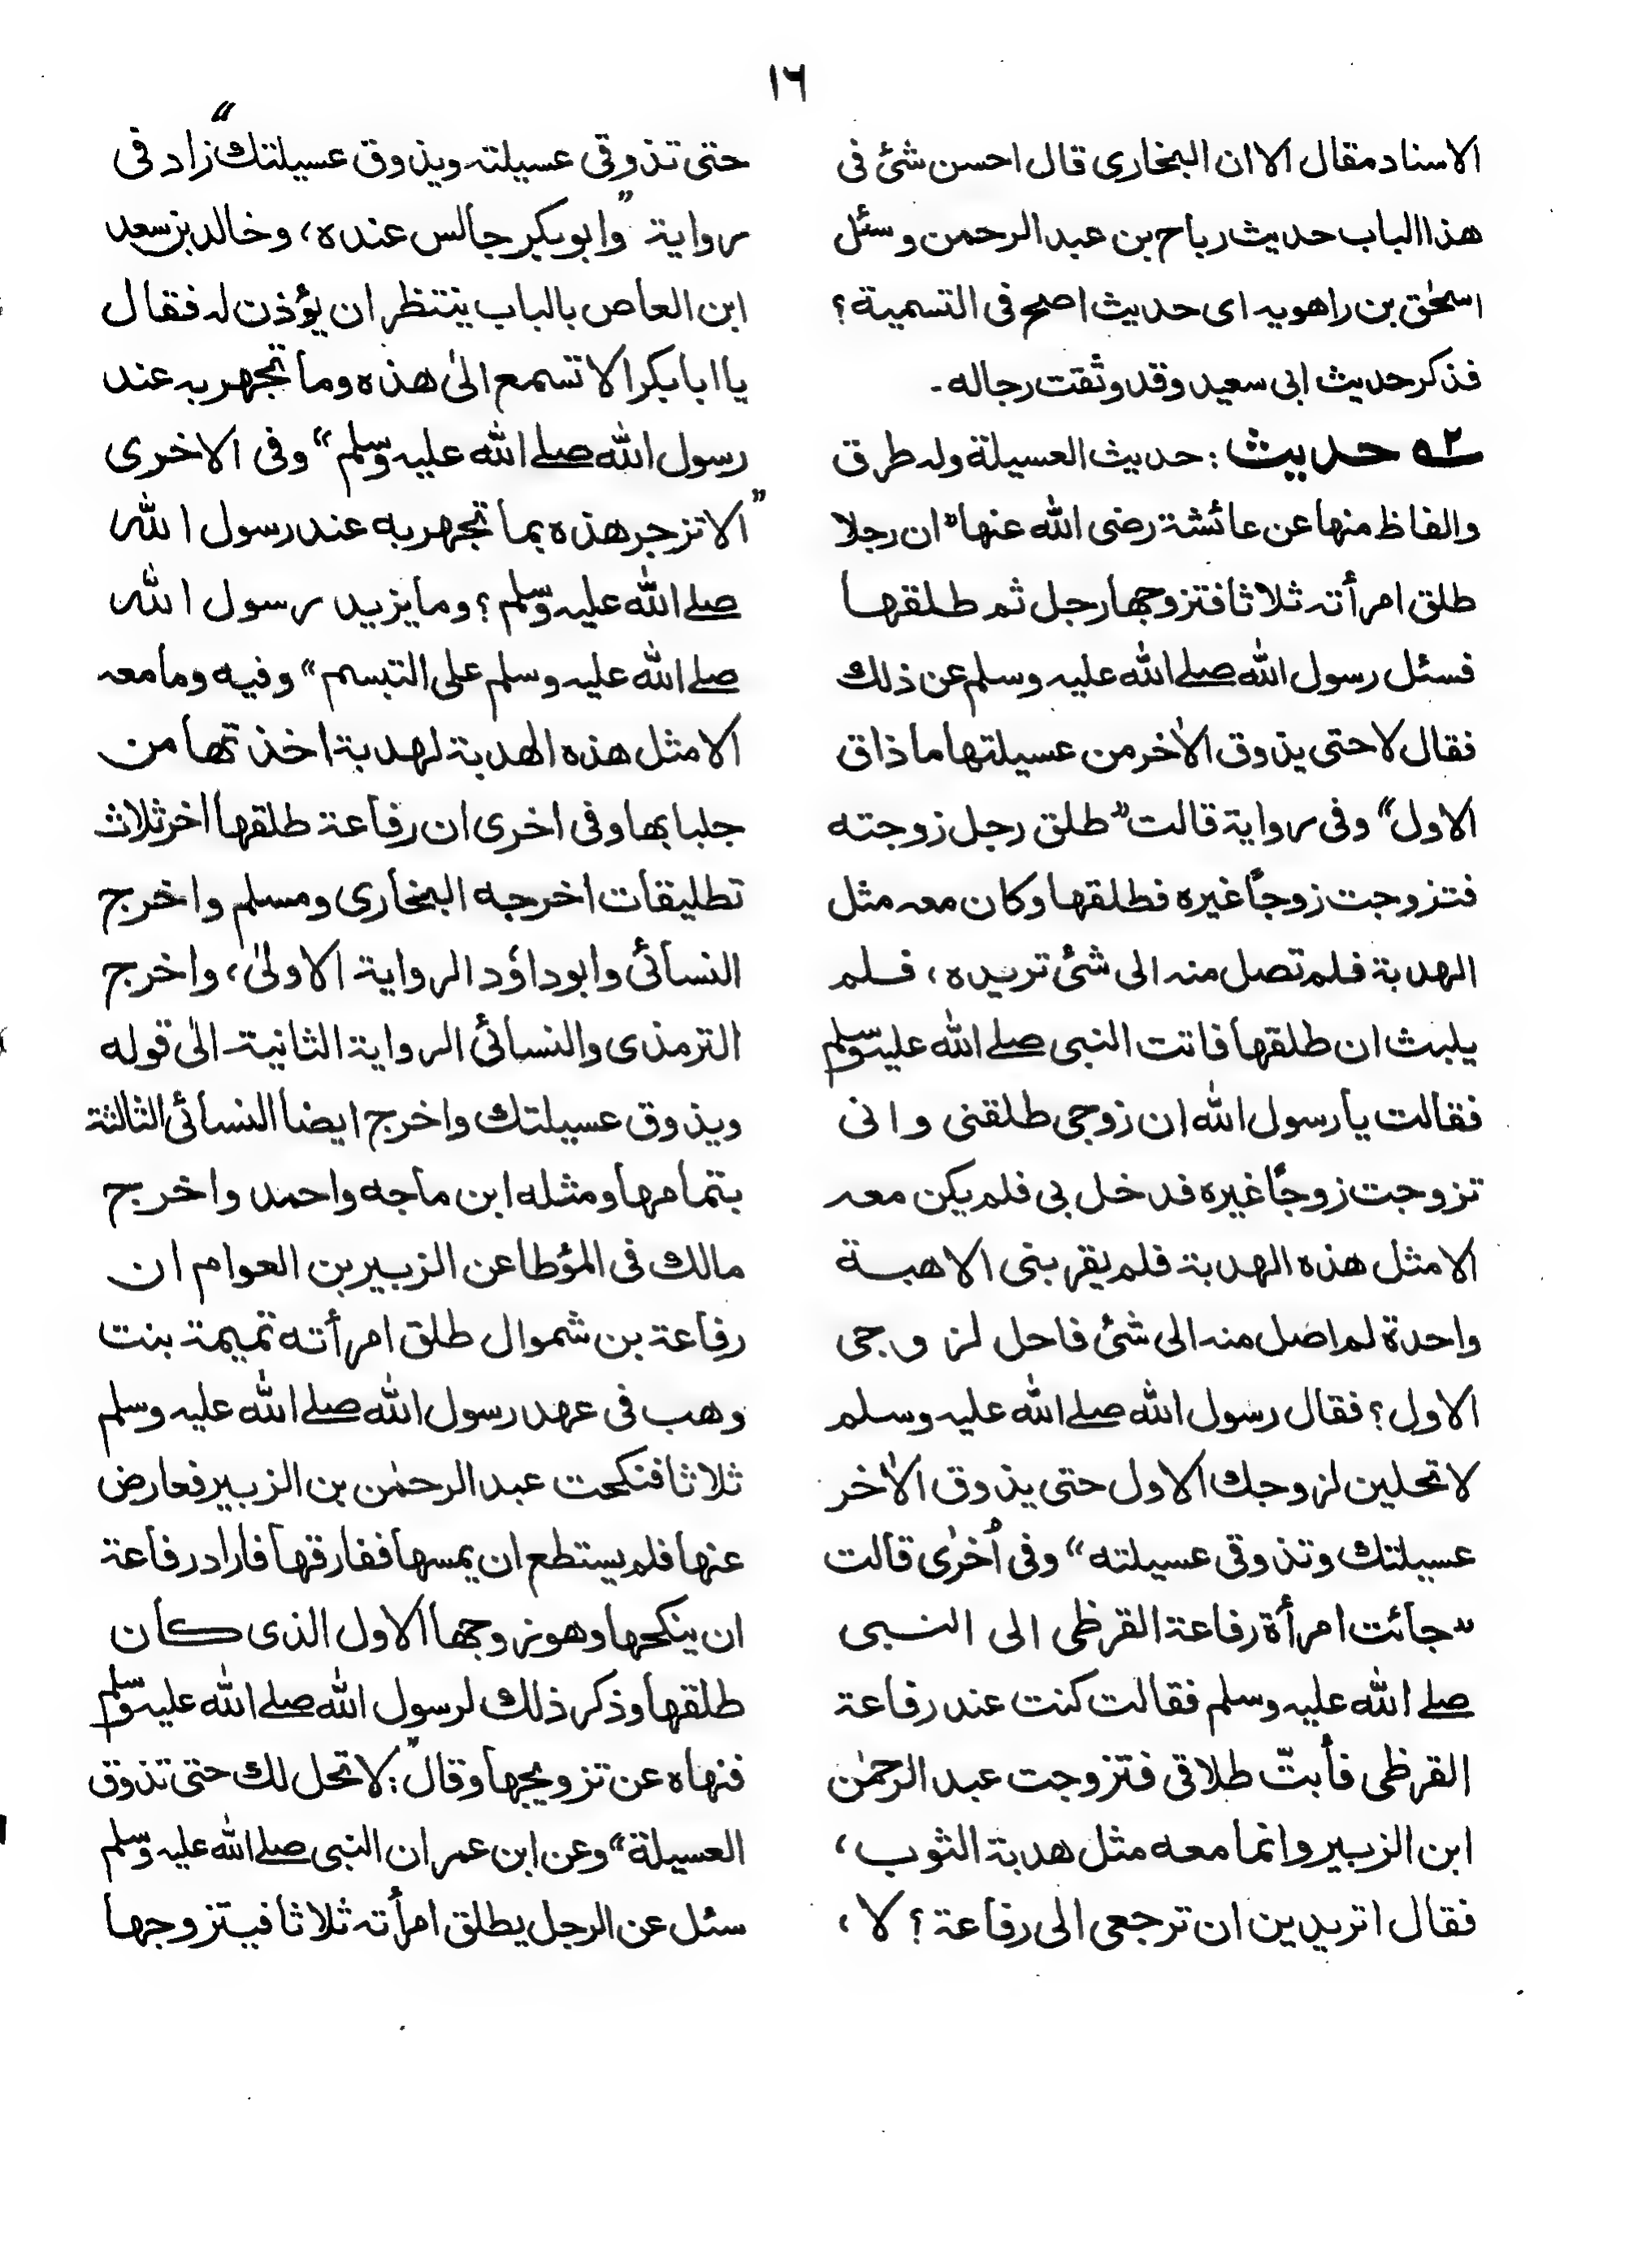 ١٦
الاسناد مقال الا ان البخاری قال احسن شئ فی
هذا الباب حدیث رباح بن عبد الرحمن وسئل
اسحٰق بن راهویہ ای حدیث اصح فی التسمیة؟
فذکر حدیث ابی سعید وقد وثقت رجاله۔
٥٢ حدیث: حدیث العسیلة ولہ طرق
والفاظ منها عن عائشة رضی الله عنها "ان رجلا
طلق امرأتہ ثلاثا فتزوجها رجل ثم طلقها
فسئل رسول الله صلے الله علیہ وسلم عن ذلك
فقال لا حتی یذوق الاٰخر من عسیلتها ما ذاق
الاول" وفی روایة قالت "طلق رجل زوجته
فتزوجت زوجًا غیره فطلقها وکان معہ مثل
الهدبة فلم تصل منہ الی شئ تریده، فلم
یلبث ان طلقها فاتت النبی صلے الله علیہ وسلم
فقالت یا رسول الله ان زوجی طلقنی وانی
تزوجت زوجًا غیره فدخل بی فلم یکن معہ
الا مثل هذه الهدبة فلم یقربنی الا هبة
واحدة لم اصل منہ الی شئ فاحل لزوجی
الاول؟ فقال رسول الله صلے الله علیہ وسلم
لا تحلین لزوجك الاول حتی یذوق الاٰخر
عسیلتك وتذوقی عسیلته" وفی أُخرٰی قالت
"جائت امرأة رفاعة القرظی الی النبی
صلے الله علیہ وسلم فقالت کنت عند رفاعة
القرظی فأبتّ طلاقی فتزوجت عبد الرحمٰن
ابن الزبیر وانما معه مثل هدبة الثوب،
فقال اتریدین ان ترجعی الی رفاعة؟ لا،
حتی تذوقی عسیلتہ ویذوق عسیلتك" زاد فی
روایة "وابوبکر جالس عنده، وخالد بن سعید
ابن العاص بالباب ینتظر ان یؤذن لہ فقال
یا ابا بکر الا تسمع الیٰ هذه وما تجهر بہ عند
رسول الله صلے الله علیہ وسلم" وفی الاخری
"الا تزجر هذه بما تجهر به عند رسول الله
صلے الله علیہ وسلم؟ وما یزید رسول الله
صلے الله علیہ وسلم علی التبسم" وفیه وما معہ
الا مثل هذه الهدبة لهدبة اخذتها من
جلبابها وفی اخری ان رفاعة طلقها اخر ثلاث
تطلیقات اخرجه البخاری ومسلم واخرج
النسائی وابوداؤد الروایة الاولیٰ، واخرج
الترمذی والنسائی الروایة الثانیة الیٰ قوله
ویذوق عسیلتك واخرج ایضا النسائی الثالثة
بتمامها ومثله ابن ماجه واحمد واخرج
مالك فی المؤطا عن الزبیر بن العوام ان
رفاعة بن شموال طلق امرأته تمیمة بنت
وهب فی عهد رسول الله صلے الله علیہ وسلم
ثلاثا فنکحت عبد الرحمٰن بن الزبیر فعارض
عنها فلم یستطع ان یمسها ففارقها فاراد رفاعة
ان ینکحها وهو زوجها الاول الذی کان
طلقها وذکر ذلك لرسول الله صلے الله علیہ وسلم
فنهاه عن تزویجها وقال: "لا تحل لك حتی تذوق
العسیلة" وعن ابن عمر ان النبی صلے الله علیہ وسلم
سئل عن الرجل یطلق امرأتہ ثلاثا فیتزوجها